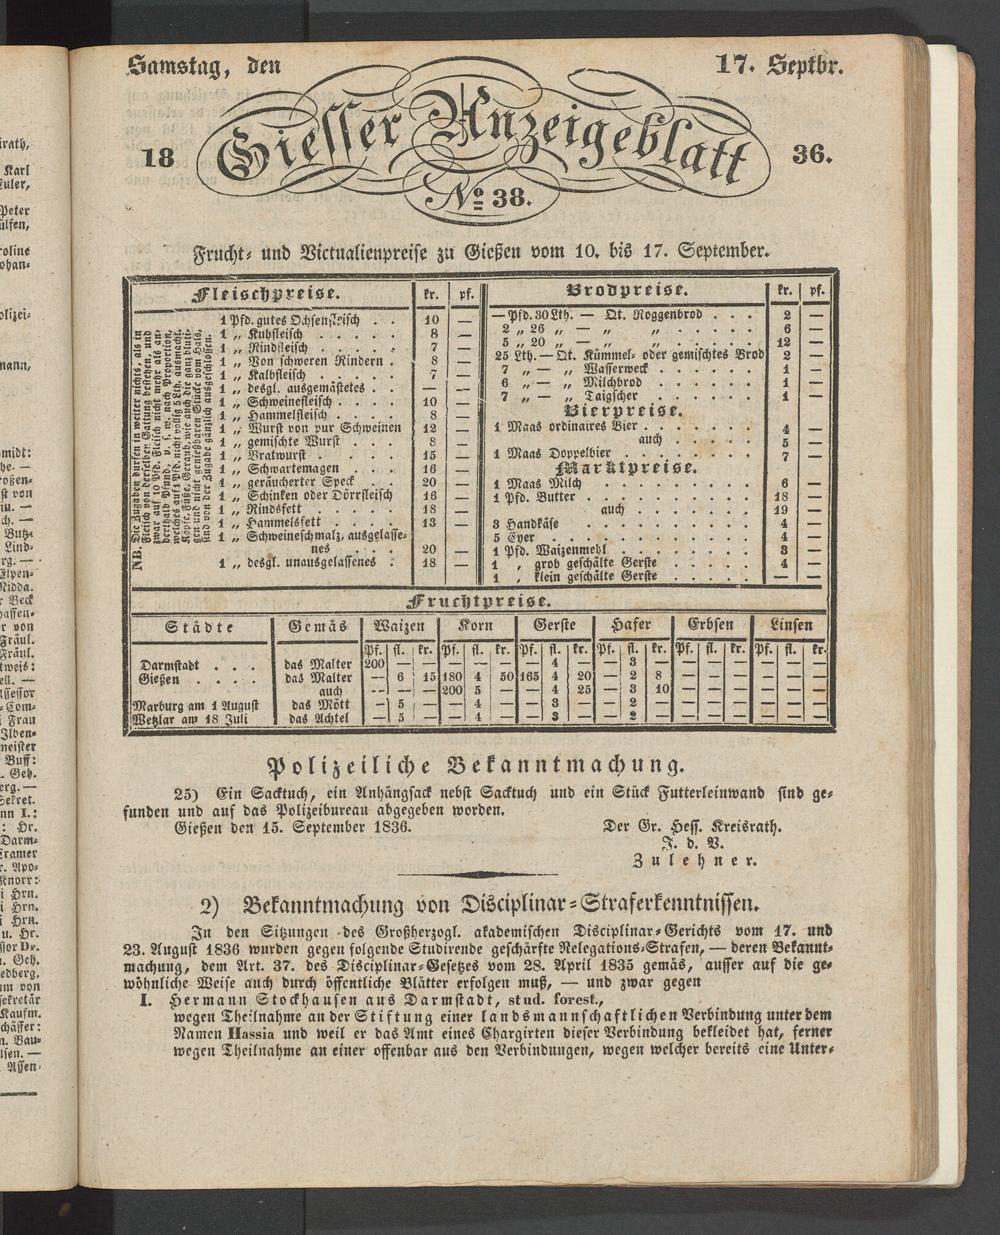 Samstag, den 17. Septbr.
Giesser Anzeigeblatt
18 36.
№ 38.
Frucht- und Victualienpreise zu Gießen vom 10. bis 17. September.
Fleischpreise. kr. pf.
1 Pfd. gutes Ochsenfleisch . . 10 —
1 „ Kuhfleisch . . . . . 8 —
1 „ Rindfleisch . . . . . 7 —
1 „ Von schweren Rindern . 8 —
1 „ Kalbfleisch . . . . . 7 —
1 „ desgl. ausgemästetes . . — —
1 „ Schweinefleisch . . . . 10 —
1 „ Hammelfleisch . . . . 8 —
1 „ Wurst von pur Schweinen 12 —
1 „ gemischte Wurst . . . 8 —
1 „ Bratwurst . . . . . 15 —
1 „ Schwartemagen . . . 16 —
1 „ geräucherter Speck . . 20 —
1 „ Schinken oder Dörrfleisch 16 —
1 „ Rindsfett . . . . . 18 —
1 „ Hammelsfett . . . . 13 —
1 „ Schweineschmalz, ausgelasse-
nes . . . 20 —
1 „ desgl. unausgelassenes . 18 —
NB. Die Zugaben dürfen in weiter nichts, als in
Fleisch von derselben Gattung bestehen, und
zwar auf 10 Pfd. Fleisch nicht mehr als an-
derthalb Pfund, u. s. w. nach Proportion,
welches auf 1 Pfd. nicht völlig 5 Lth. ausmacht.
Köpfe, Füße, Geraub, wie auch die ganz bluti-
gen und nicht genießbaren Stücke vom Hals,
sind von der Zugabe gänzlich ausgeschlossen.
Brodpreise. kr. pf.
— Pfd. 30 Lth. — Qt. Roggenbrod . . . 2 —
2 „ 26 „ — „ „ . . . . . 6 —
5 „ 20 „ — „ „ . . . . . 12 —
25 Lth. — Qt. Kümmel- oder gemischtes Brod 2 —
7 „ — „ Wasserweck . . . . . . 1 —
6 „ — „ Milchbrod . . . . . . 1 —
7 „ — „ Taigscher . . . . . . 1 —
Bierpreise.
1 Maas ordinaires Bier . . . . . . . 4 —
auch . . . . . . 5 —
1 Maas Doppelbier . . . . . . . . 7 —
Marktpreise.
1 Maas Milch . . . . . . . . . . 6 —
1 Pfd. Butter . . . . . . . . . . 18 —
auch . . . . . . . 19 —
3 Handkäse . . . . . . . . . . 4 —
5 Eyer . . . . . . . . . . . . 4 —
1 Pfd. Waizenmehl . . . . . . . . 3 —
1 „ grob geschälte Gerste . . . . . 4 —
1 „ klein geschälte Gerste . . . . . — —
Fruchtpreise.
Städte Gemäs Waizen Korn Gerste Hafer Erbsen Linsen
Pf. fl. kr. Pf. fl. kr. Pf. fl. kr. Pf. fl. kr. Pf. fl. kr. Pf. fl. kr.
Darmstadt . . . das Malter 200 — — — — — — 4 — — 3 — — — — — — —
Gießen . . . . das Malter — 6 15 180 4 50 165 4 20 — 2 8 — — — — — —
auch — — — 200 5 — — 4 25 — 3 10 — — — — — —
Marburg am 1 August das Mött — 5 — — 4 — — 3 — — 2 — — — — — — —
Wetzlar am 18 Juli das Achtel — 5 — — 4 — — 3 — — 2 — — — — — — —
Polizeiliche Bekanntmachung.
25) Ein Sacktuch, ein Anhängsack nebst Sacktuch und ein Stück Futterleinwand sind ge-
funden und auf das Polizeibureau abgegeben worden.
Gießen den 15. September 1836. Der Gr. Hess. Kreisrath.
J. d. V.
Zulehner.
2) Bekanntmachung von Disciplinar-Straferkenntnissen.
In den Sitzungen des Großherzogl. akademischen Disciplinar-Gerichts vom 17. und
23. August 1836 wurden gegen folgende Studirende geschärfte Relegations-Strafen, — deren Bekannt-
machung, dem Art. 37. des Disciplinar-Gesetzes vom 28. April 1835 gemäs, ausser auf die ge-
wöhnliche Weise auch durch öffentliche Blätter erfolgen muß, — und zwar gegen
I. Hermann Stockhausen aus Darmstadt, stud. forest.,
wegen Theilnahme an der Stiftung einer landsmannschaftlichen Verbindung unter dem
Namen Hassia und weil er das Amt eines Chargirten dieser Verbindung bekleidet hat, ferner
wegen Theilnahme an einer offenbar aus den Verbindungen, wegen welcher bereits eine Unter-